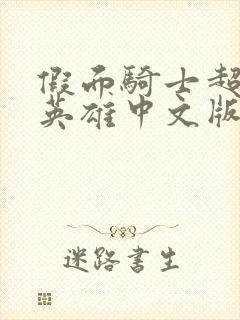 假面騎士超
英雄中文版
迷路書生